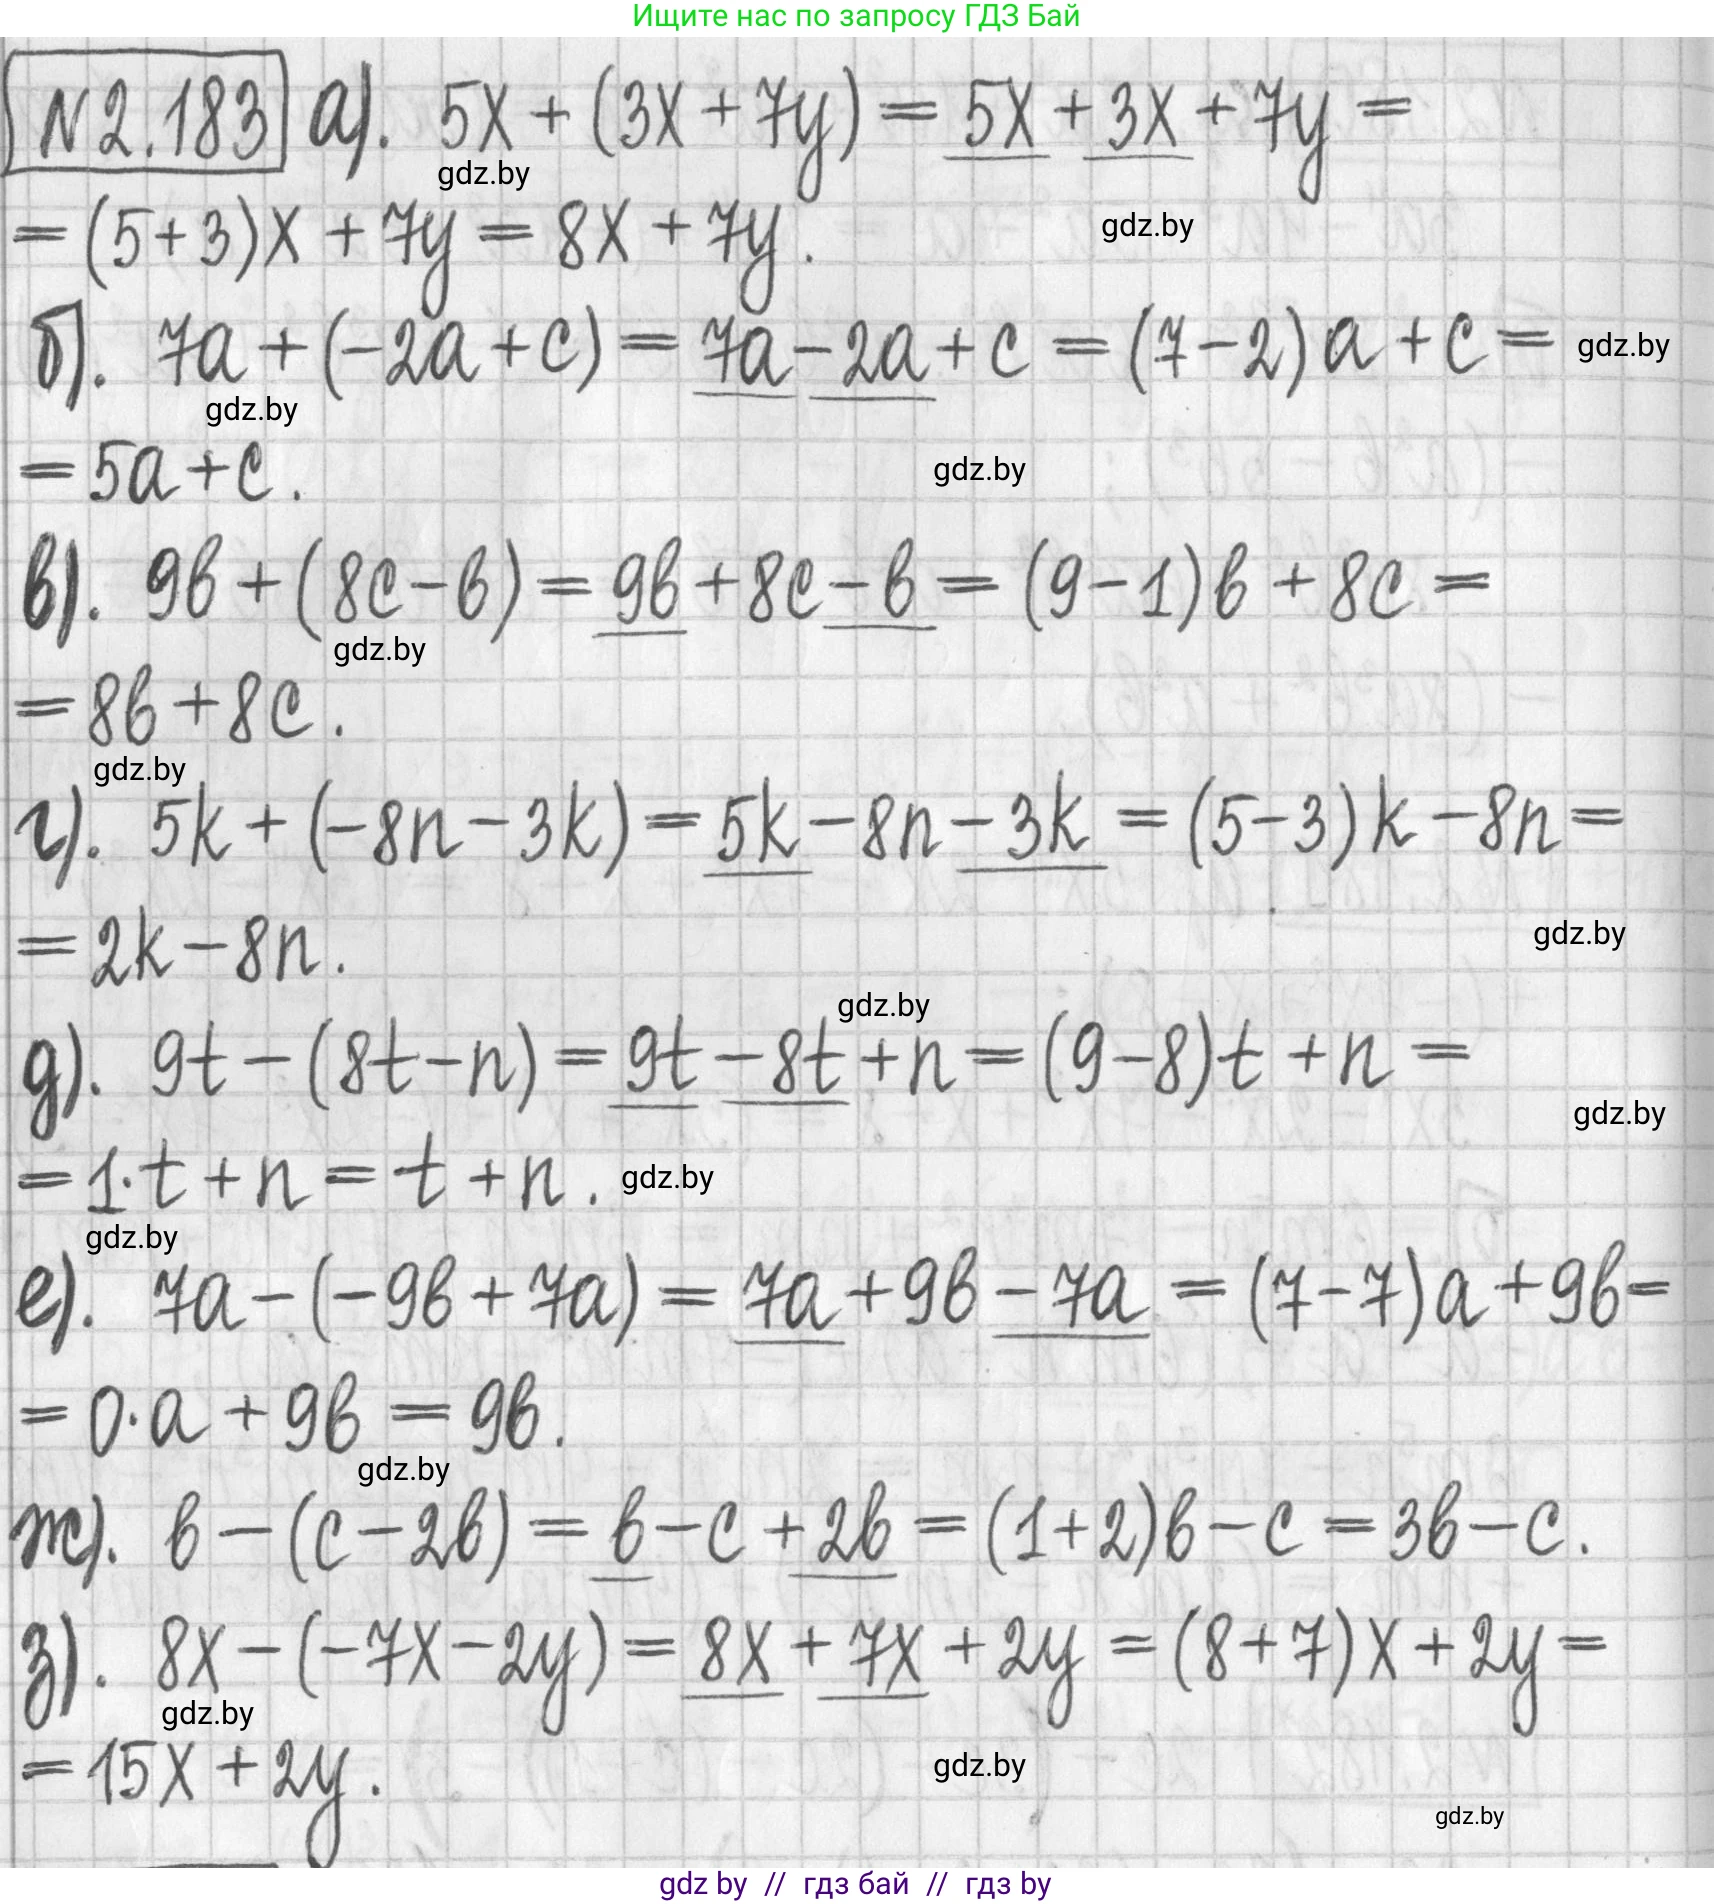 Ищите нас по запросу ГДЗ Бай
N2.183 а). 5x + (3x + 7y) = 5x + 3x + 7y =
gdz.by
= (5+3)x + 7y = 8x + 7y.
gdz.by
б). 7a + (-2a + c) = 7a - 2a + c = (7-2)a + c =
gdz.by
gdz.by
= 5a + c.
gdz.by
в). 9b + (8c - b) = 9b + 8c - b = (9-1)b + 8c =
gdz.by
= 8b + 8c.
gdz.by
г). 5k + (-8n - 3k) = 5k - 8n - 3k = (5-3)k - 8n =
= 2k - 8n.
gdz.by
gdz.by
д). 9t - (8t - n) = 9t - 8t + n = (9-8)t + n =
gdz.by
= 1·t + n = t + n.
gdz.by
gdz.by
е). 7a - (-9b + 7a) = 7a + 9b - 7a = (7-7)a + 9b =
= 0·a + 9b = 9b.
gdz.by
ж). b - (c - 2b) = b - c + 2b = (1+2)b - c = 3b - c.
з). 8x - (-7x - 2y) = 8x + 7x + 2y = (8+7)x + 2y =
gdz.by
= 15x + 2y.
gdz.by
gdz.by
gdz by // гдз бай // гдз by